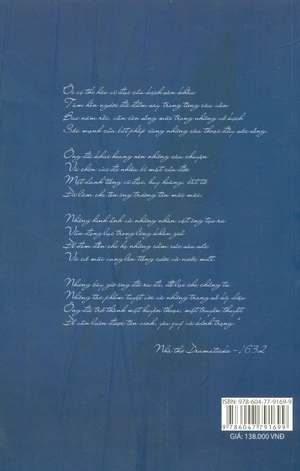 Ôi vị thi hào vĩ đại của kịch sân khấu
Tâm hồn người đã đắm say trong từng câu văn
Bao năm rồi, vẫn còn sống mãi trong những vở kịch
Sức mạnh của bút pháp cùng những câu thoại đầy sức sống.
Ông đã khai hoang nên những câu chuyện
Và chôn vùi đi nhiều bí mật của đời
Một danh tiếng vĩ đại, huy hoàng, bất tử
Đã làm cho tên ông trường tồn mãi mãi.
Những hình ảnh và những nhân vật ông tạo ra
Vẫn đọng lại trong lòng khán giả
Để đem đến cho họ những cảm xúc sâu sắc
Và vở mãi cung lên tiếng cười và nước mắt.
Nhưng bây giờ ông đã ra đi, để lại cho chúng ta
Những tác phẩm tuyệt vời và những trang sử kỳ diệu
Ông đã trở thành một huyền thoại, một truyền thuyết
Để vẫn luôn được tôn vinh, yêu quý và kính trọng."
Nhà thơ Dramaticke - 1632
ISBN: 978-604-77-9169-9
9 786047 791699
GIÁ: 138.000 VNĐ